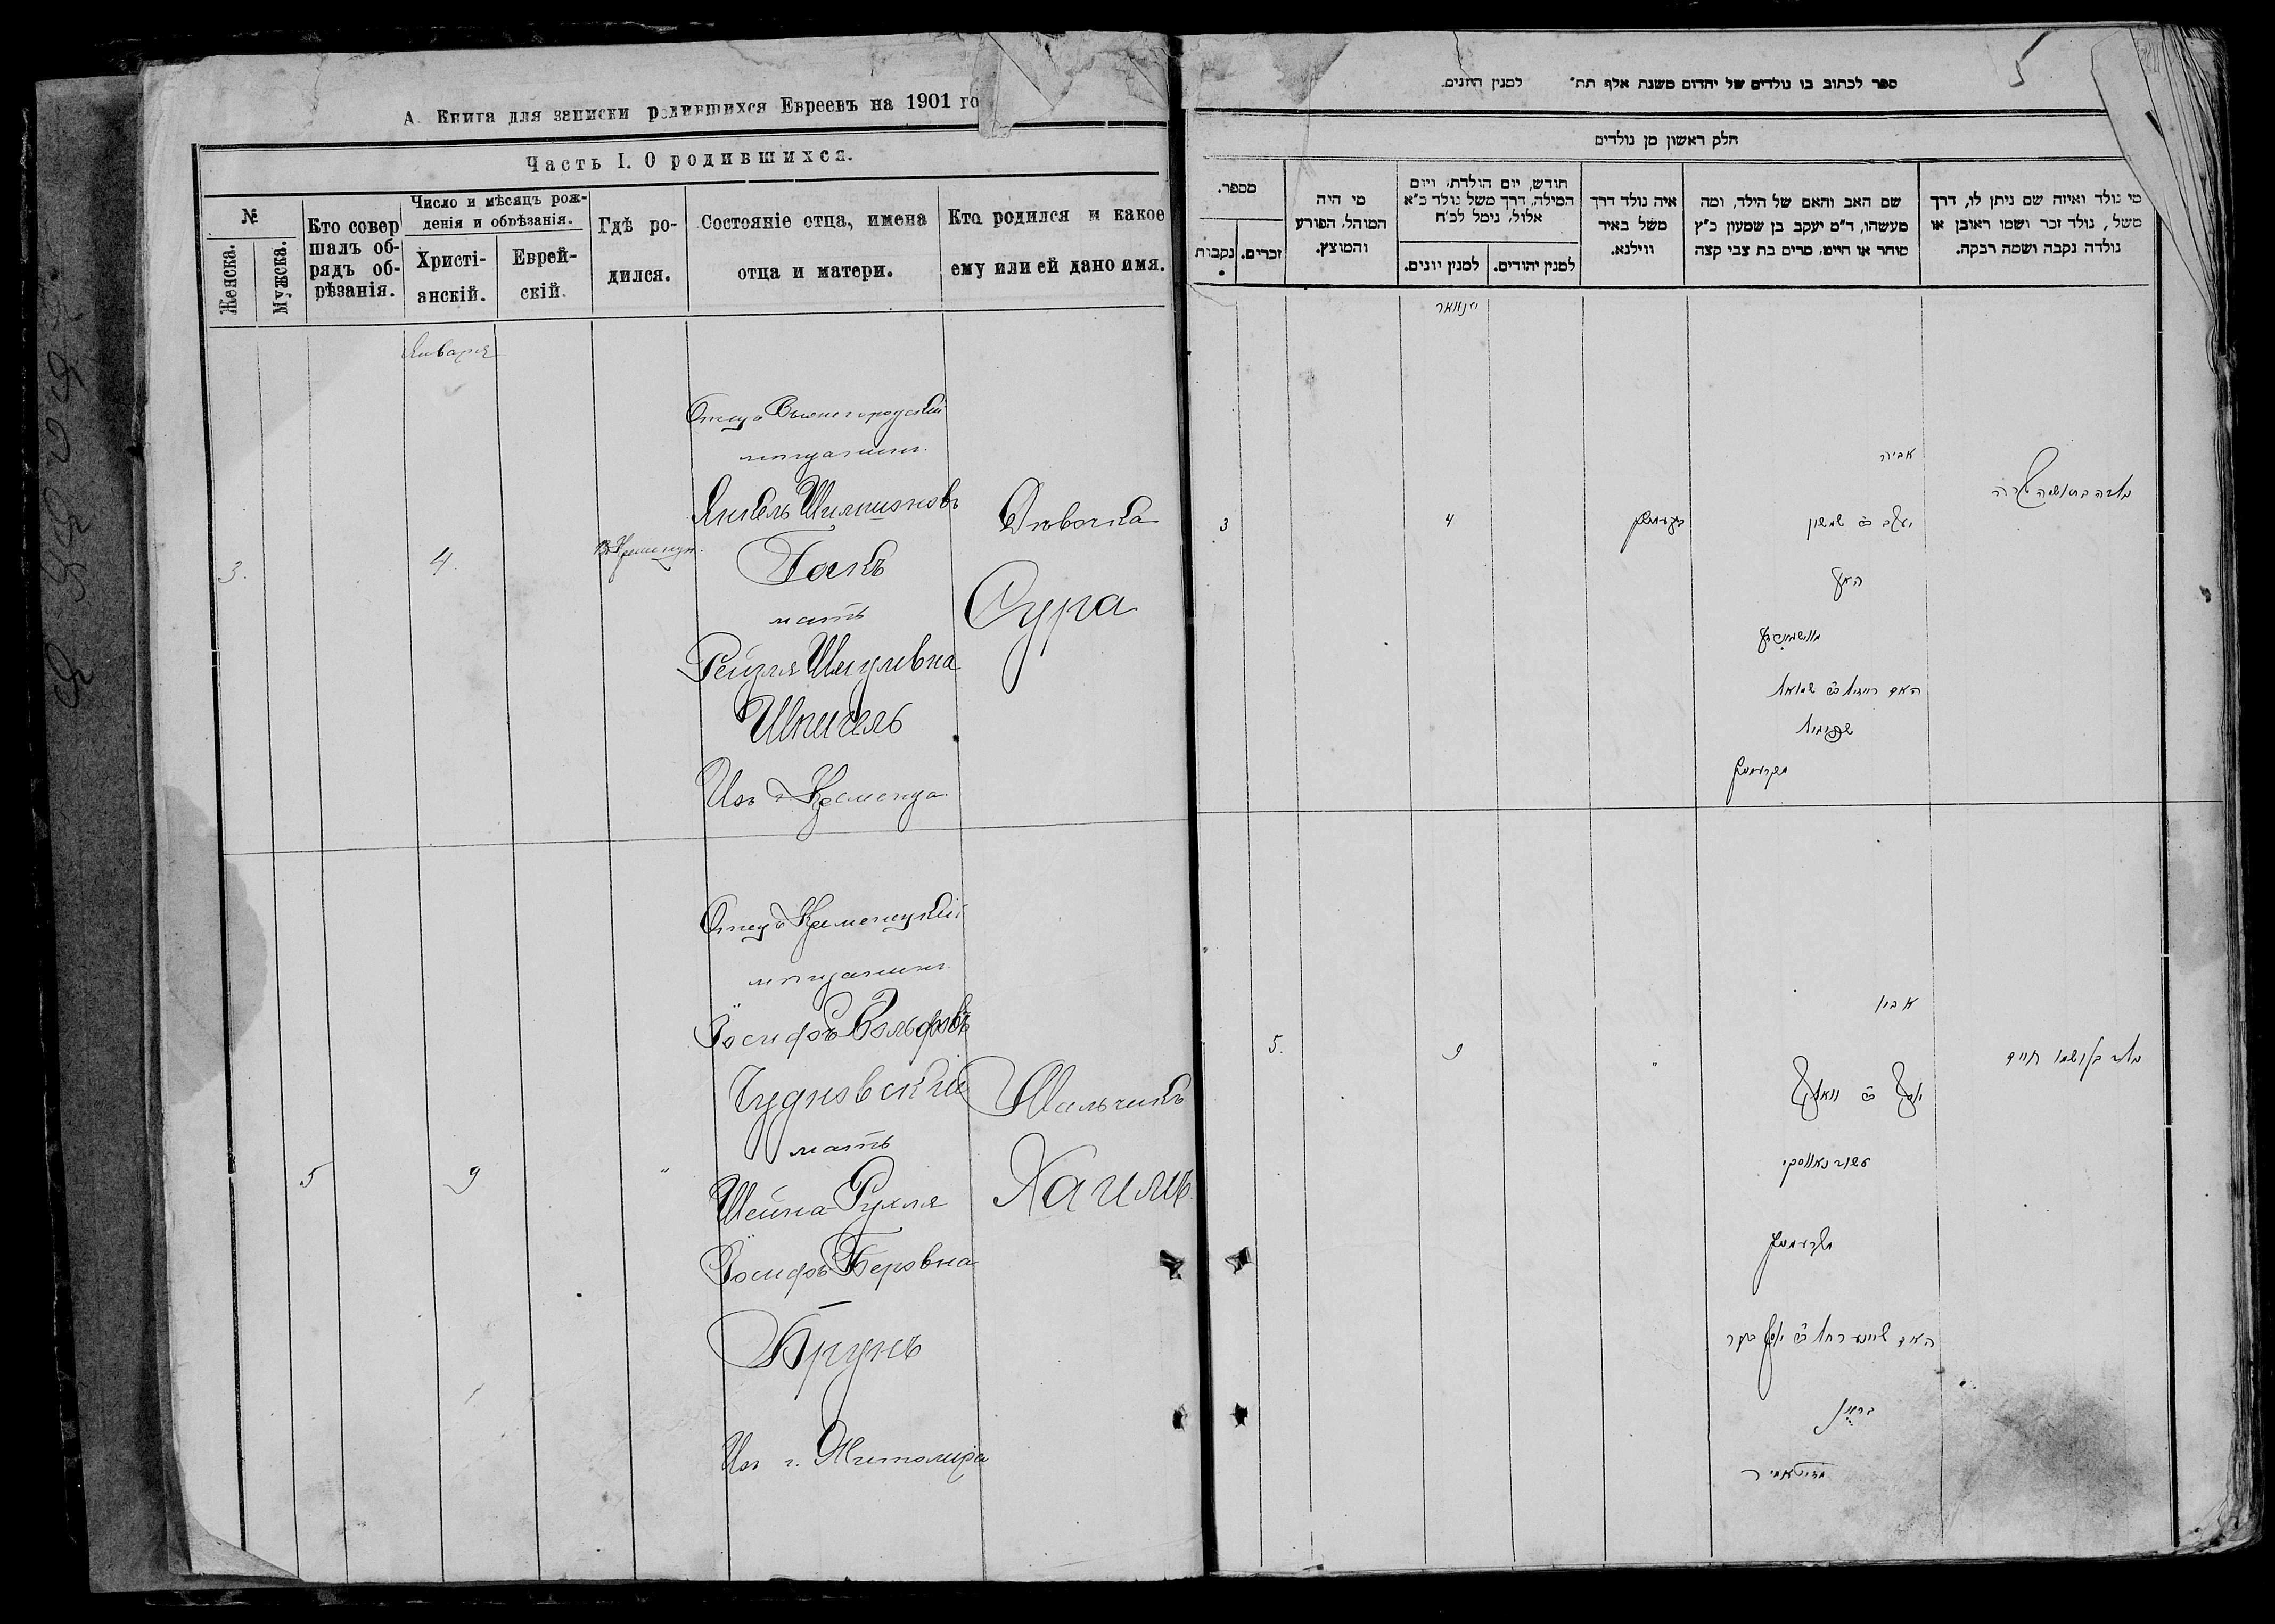 А. Книга для записки родившихся Евреевъ на 1901 го
Часть I. О родившихся.
№
Женска.
Мужска.
Кто совер
шалъ об-
рядъ об-
рѣзанія.
Число и мѣсяцъ рож-
денія и обрѣзанія.
Христі-
анскій.
Еврей-
скій.
Гдѣ ро-
дился.
Состояніе отца, имена
отца и матери.
Кто родился и какое
ему или ей дано имя.
Января
Отецъ Вышегородскій
мѣщанинъ
Янкель Шимшоновъ
Гакъ
мать
Рейзля Шмулевна
Шпигель
Изъ г. Кременца
3.
4.
В. Кременцѣ.
Дѣвочка
Сура
Отецъ Кременецкій
мѣщанинъ
Іосифъ Вольфовъ
Чудновскій
мать
Шейна-Рухля
Іосифъ-Беровна
Брунъ
Изъ г. Житомира
5
9
"
Мальчикъ
Хаимъ
5
ספר לכתוב בו נולדים של יהדום משנת אלף תת״ למנין היונים.
חלק ראשון מן נולדים
מספר.
נקבות
זכרים.
מי היה
המוהל, הפורע
והמוצץ.
חודש, יום הולדת, ויום
המילה, דרך משל נולד כ״א
אלול, נימל לכ״ח
למנין יונים.
למנין יהודים.
איה נולד דרך
משל באיר
ווילנא.
שם האב והאם של הילד, ומה
מעשהו, ד״מ יעקב בן שמעון כ״ץ
סוחר או חייט, מרים בת צבי קצה
מי נולד ואיזה שם ניתן לו, דרך
משל, נולד זכר ושמו ראובן או
נולדה נקבה ושמה רבקה.
ינוואר
3
4
אביה
יעקב ב״ר שמשון
האק
האם רייזיל ב״ר שמואל
שפיגיל
5.
9
"
אביו
יוסף ב״ר וואלף
טשודנאווסקי
האם שיינע רחל ב״ר יוסף בער
ברוין
נולד בן ושמו חיים